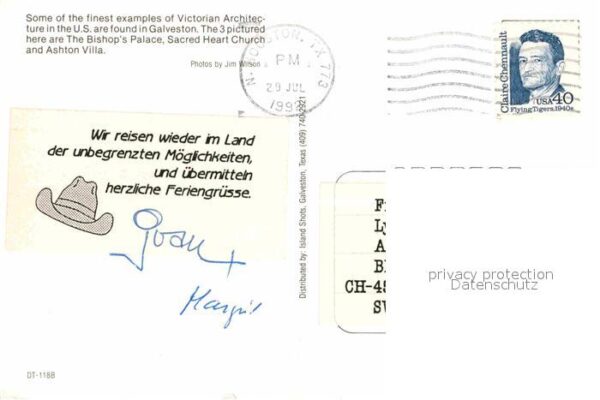 Some of the finest examples of Victorian Architec-
ture in the U.S. are found in Galveston. The 3 pictured
here are The Bishop's Palace, Sacred Heart Church
and Ashton Villa.
Photos by Jim Wilson
N. HOUSTON, TX 773
PM
29 JUL
Claire Chennault
USA 40
Flying Tigers, 1940s
Wir reisen wieder im Land
der unbegrenzten Möglichkeiten,
und übermitteln
herzliche Feriengrüsse.
Distributed by: Island Shots, Galveston, Texas (409) 740-2921
F
L
A
B
CH-45
S
privacy protection
Datenschutz
DT-118B